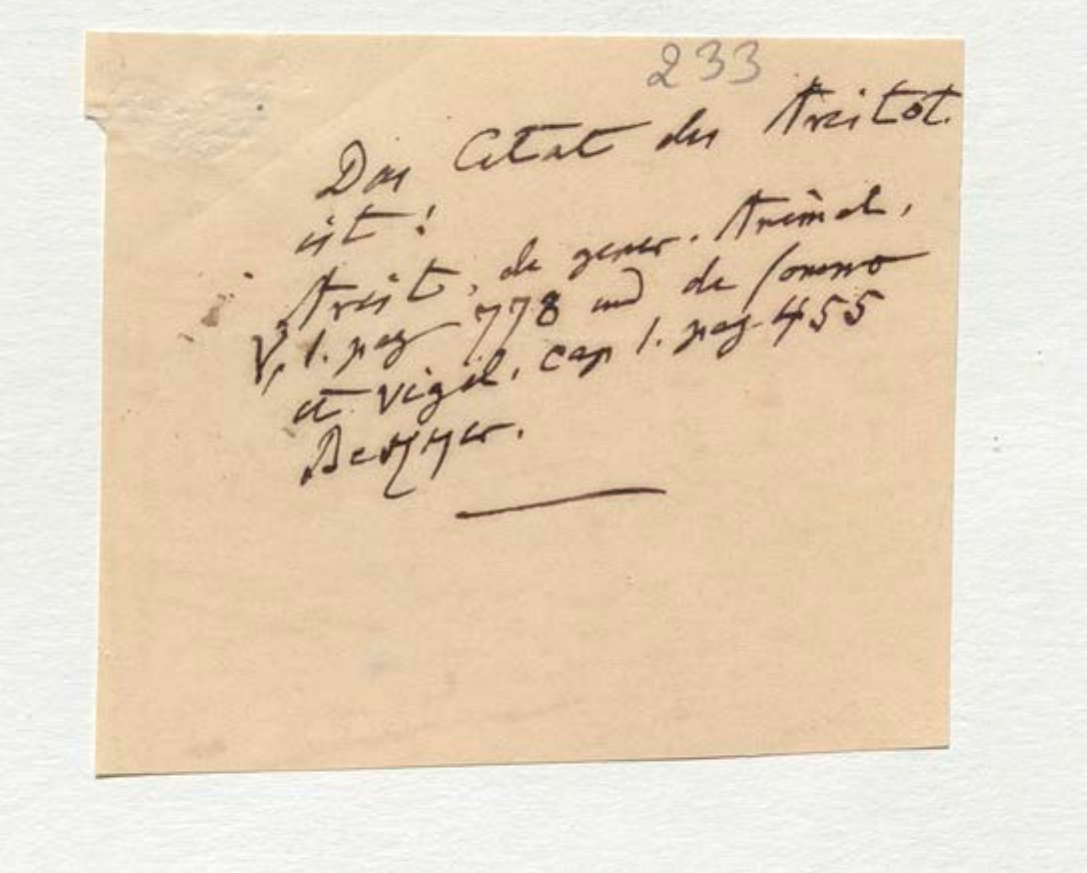 233
Das Citat des Aristot.
ist:
Arist, de gener. Animal,
V, 1. pag 778 und de somno
et vigil, cap 1. pag 455